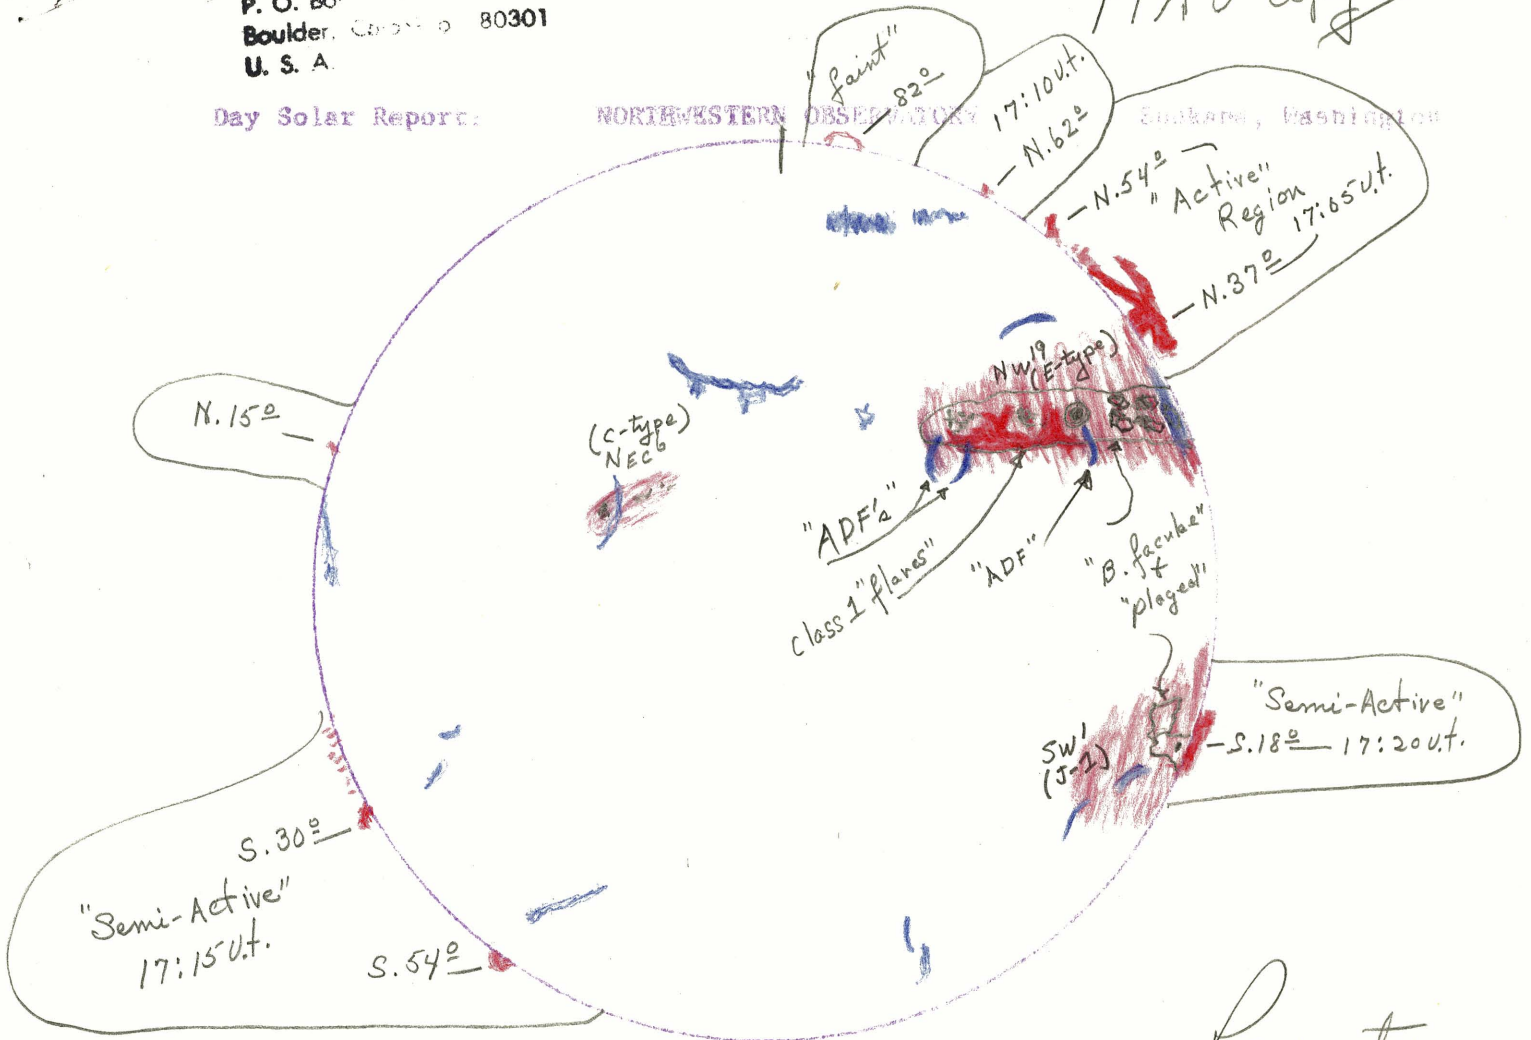 P. O.
Boulder, 80301
U. S. A.
Day Solar Report: NORTHWESTERN OBSERVATORY Spokane, Washington
"faint"
82º
17:10 U.t.
N.62º
N.54º
"Active"
Region
17:05 U.t.
N.37º
NW19
(E-type)
N.15º
(C-type)
NEC6
"ADF's"
class 1 "flares"
"ADF"
"B. faculae"
&
"plaged"
"Semi-Active"
S.18º 17:20 U.t.
SW1
(J-1)
S.30º
"Semi-Active"
17:15 U.t.
S.54º